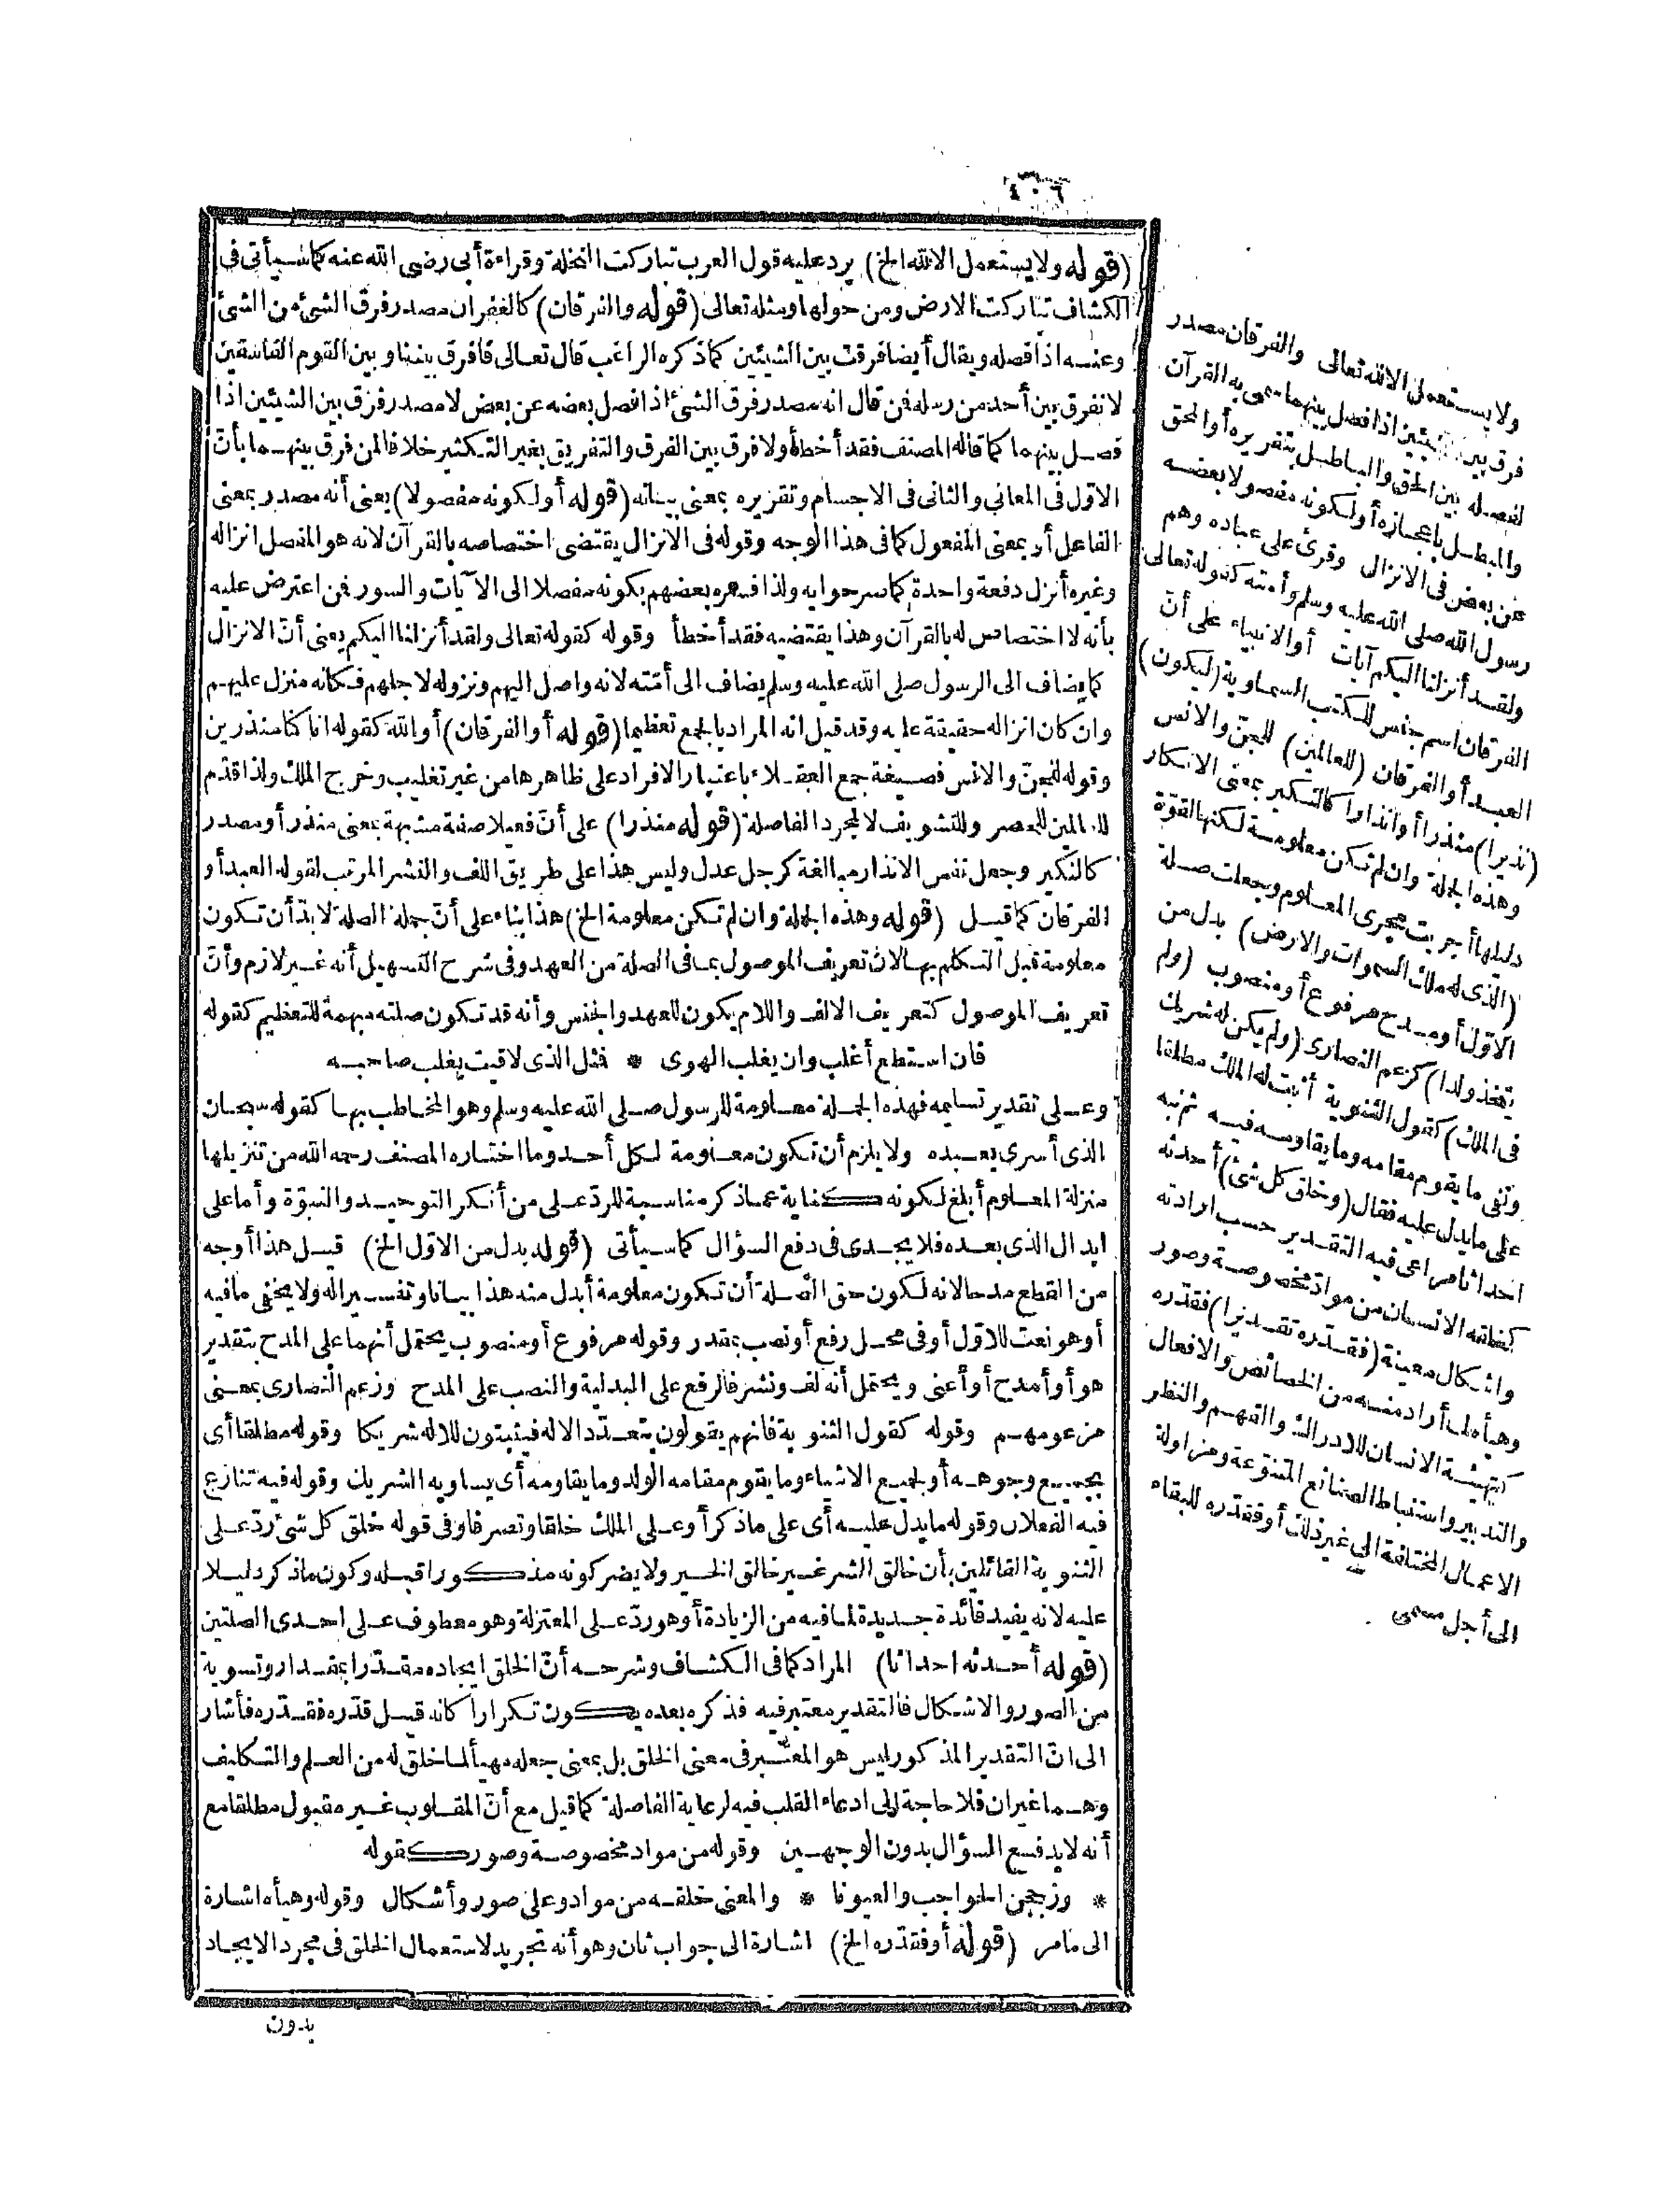 ٤٠٦
(قوله ولا يستعمل الا لله الخ) يرد عليه قول العرب تباركت النخلة وقراءة أبى رضى الله عنه كما سيأتى فى
الكشاف تباركت الارض ومن حولها ومثله تعالى (قوله والفرقان) كالغفران مصدر فرق الشئ من الشئ
وعنه اذا فصله ويقال أيضا فرقت بين الشيئين كما ذكره الراغب قال تعالى فافرق بيننا وبين القوم الفاسقين
لا نفرق بين أحد من رسله فمن قال انه مصدر فرق الشئ اذا فصل بعضه عن بعض لا مصدر فرق بين الشيئين اذا
فصل بينهما كما قاله المصنف فقد أخطأ ولا فرق بين الفرق والتفريق بغير التكثير خلافا لمن فرق بينهما بأن
الاول فى المعانى والثانى فى الاجسام وتقريره بمعنى بيانه (قوله أو لكونه مفصولا) يعنى أنه مصدر بمعنى
الفاعل أو بمعنى المفعول كما فى هذا الوجه وقوله فى الانزال يقتضى اختصاصه بالقرآن لانه هو المفصل انزاله
وغيره أنزل دفعة واحدة كما سرحوا به ولذا فسره بعضهم بكونه مفصلا الى الآيات والسور فمن اعترض عليه
بأنه لا اختصاص له بالقرآن وهذا يقتضيه فقد أخطأ وقوله كقوله تعالى ولقد أنزلنا اليكم يعنى أن الانزال
كما يضاف الى الرسول صلى الله عليه وسلم يضاف الى أمته لانه واصل اليهم ونزوله لاجلهم فكانه منزل عليهم
وان كان انزاله حقيقة عليه وقد قيل انه المراد بالجمع تعظيما (قوله أو الفرقان) أو الله كقوله انا كنا منذرين
وقوله للجن والانس فصيغة جمع العقلاء باعتبار الافراد على ظاهرها من غير تغليب وخرج الملك ولذا قدم
للعالمين للحصر وللتشويف لا لمجرد الفاصلة (قوله منذرا) على أن فعيلا صفة مشبهة بمعنى منذر أو مصدر
كالنكير وجعل نفس الانذار مبالغة كرجل عدل وليس هذا على طريق اللف والنشر المرتب لقوله العبد أو
الفرقان كما قيل (قوله وهذه الجملة وان لم تكن معلومة الخ) هذا بناء على أن جملة الصلة لا بد أن تكون
معلومة قبل التكلم بها لان تعريف الموصول بما فى الصلة من العهد وفى شرح التسهيل أنه غير لازم وأن
تعريف الموصول كتعريف الالف واللام يكون للعهد والجنس وأنه قد تكون صلته مبهمة للتعظيم كقوله
فان استطع أغلب وان يغلب الهوى * فمثل الذى لاقيت يغلب صاحبه
وعلى تقدير تسليمه فهذه الجملة معلومة للرسول صلى الله عليه وسلم وهو المخاطب بها كقوله سبحان
الذى أسرى بعبده ولا يلزم أن تكون معلومة لكل أحد وما اختاره المصنف رحمه الله من تنزيلها
منزلة المعلوم أبلغ لكونه كناية عما ذكر مناسبة للرد على من أنكر التوحيد والنبوة وأما على
ابدال الذى بعده فلا يجدى فى دفع السؤال كما سيأتى (قوله بدل من الاول الخ) قيل هذا أوجه
من القطع مدحا لانه لكون حق الصلة أن تكون معلومة أبدل منه هذا بيانا وتفسيرا له ولا يخفى ما فيه
أو هو نعت للاول أو فى محل رفع أو نصب بمقدر وقوله مرفوع أو منصوب يحتمل أنهما على المدح بتقدير
هو أو أمدح أو أعنى ويحتمل أنه لف ونشر فالرفع على البدلية والنصب على المدح وزعم النصارى بمعنى
مزعومهم وقوله كقول الثنوية فانهم يقولون بتعدد الاله فيثبتون للاله شريكا وقوله مطلقا أى
بجميع وجوهه أو لجميع الاشياء وما يقوم مقامه الولد وما يقاومه أى يساويه الشريك وقوله فيه تنازع
فيه الفعلان وقوله ما يدل عليه أى على ما ذكر أو على الملك خلقا وتصرفا وفى قوله خلق كل شئ رد على
الثنوية القائلين بأن خالق الشر غير خالق الخير ولا يضر كونه مذكورا قبله وكون ماذكر دليلا
عليه لانه يفيد فائدة جديدة لما فيه من الزيادة أو هو رد على المعتزلة وهو معطوف على احدى الصلتين
(قوله أحدثه احداثا) المراد كما فى الكشاف وشرحه أن الخلق ايجاده مقدرا بمقدار وتسوية
من الصور والاشكال فالتقدير معتبر فيه فذكره بعده يكون تكرارا كانه قيل قدره فقدره فأشار
الى ان التقدير المذكور ليس هو المعتبر فى معنى الخلق بل بمعنى جعله مهيأ لما خلق له من العلم والتكليف
وهما غيران فلا حاجة الى ادعاء القلب فيه لرعاية الفاصلة كما قيل مع أن المقلوب غير مقبول مطلقا مع
أنه لا يدفع السؤال بدون الوجهين وقوله من مواد مخصوصة وصور كقوله
* وزججن الحواجب والعيونا * والمعنى خلقه من مواد وعلى صور وأشكال وقوله وهيأه اشارة
الى ما مر (قوله أو فقدره الخ) اشارة الى جواب ثان وهو أنه تجريد لاستعمال الخلق فى مجرد الايجاد
بدون
ولا يستعمل الا لله تعالى والفرقان مصدر
فرق بين الشيئين اذا فصل بينهما سمى به القرآن
لفصله بين الحق والباطل بتقريره أو المحق
والمبطل باعجازه أو لكونه مفصولا بعضه
عن بعض فى الانزال وقرئ على عباده وهم
رسول الله صلى الله عليه وسلم وأمته كقوله تعالى
ولقد أنزلنا اليكم آيات أو الانبياء على أن
الفرقان اسم جنس للكتب السماوية (ليكون)
العبد أو الفرقان (للعالمين) للجن والانس
(نذيرا) منذرا أو انذارا كالنكير بمعنى الانكار
وهذه الجملة وان لم تكن معلومة لكنها لقوة
دليلها أجريت مجرى المعلوم وجعلت صلة
(الذى له ملك السموات والارض) بدل من
الاول أو مدح مرفوع أو منصوب (ولم
يتخذ ولدا) كزعم النصارى (ولم يكن له شريك
فى الملك) كقول الثنوية أثبت له الملك مطلقا
ونفى ما يقوم مقامه وما يقاومه فيه ثم نبه
على ما يدل عليه فقال (وخلق كل شئ) أحدثه
احداثا مراعى فيه التقدير حسب ارادته
كخلقه الانسان من مواد مخصوصة وصور
واشكال معينة (فقدره تقديرا) فقدره
وهيأه لما أراد منه من الخصائص والافعال
كتهيئة الانسان للادراك والفهم والنظر
والتدبير واستنباط الصنائع المتنوعة ومزاولة
الاعمال المختلفة الى غير ذلك أو فقدره للبقاء
الى أجل مسمى